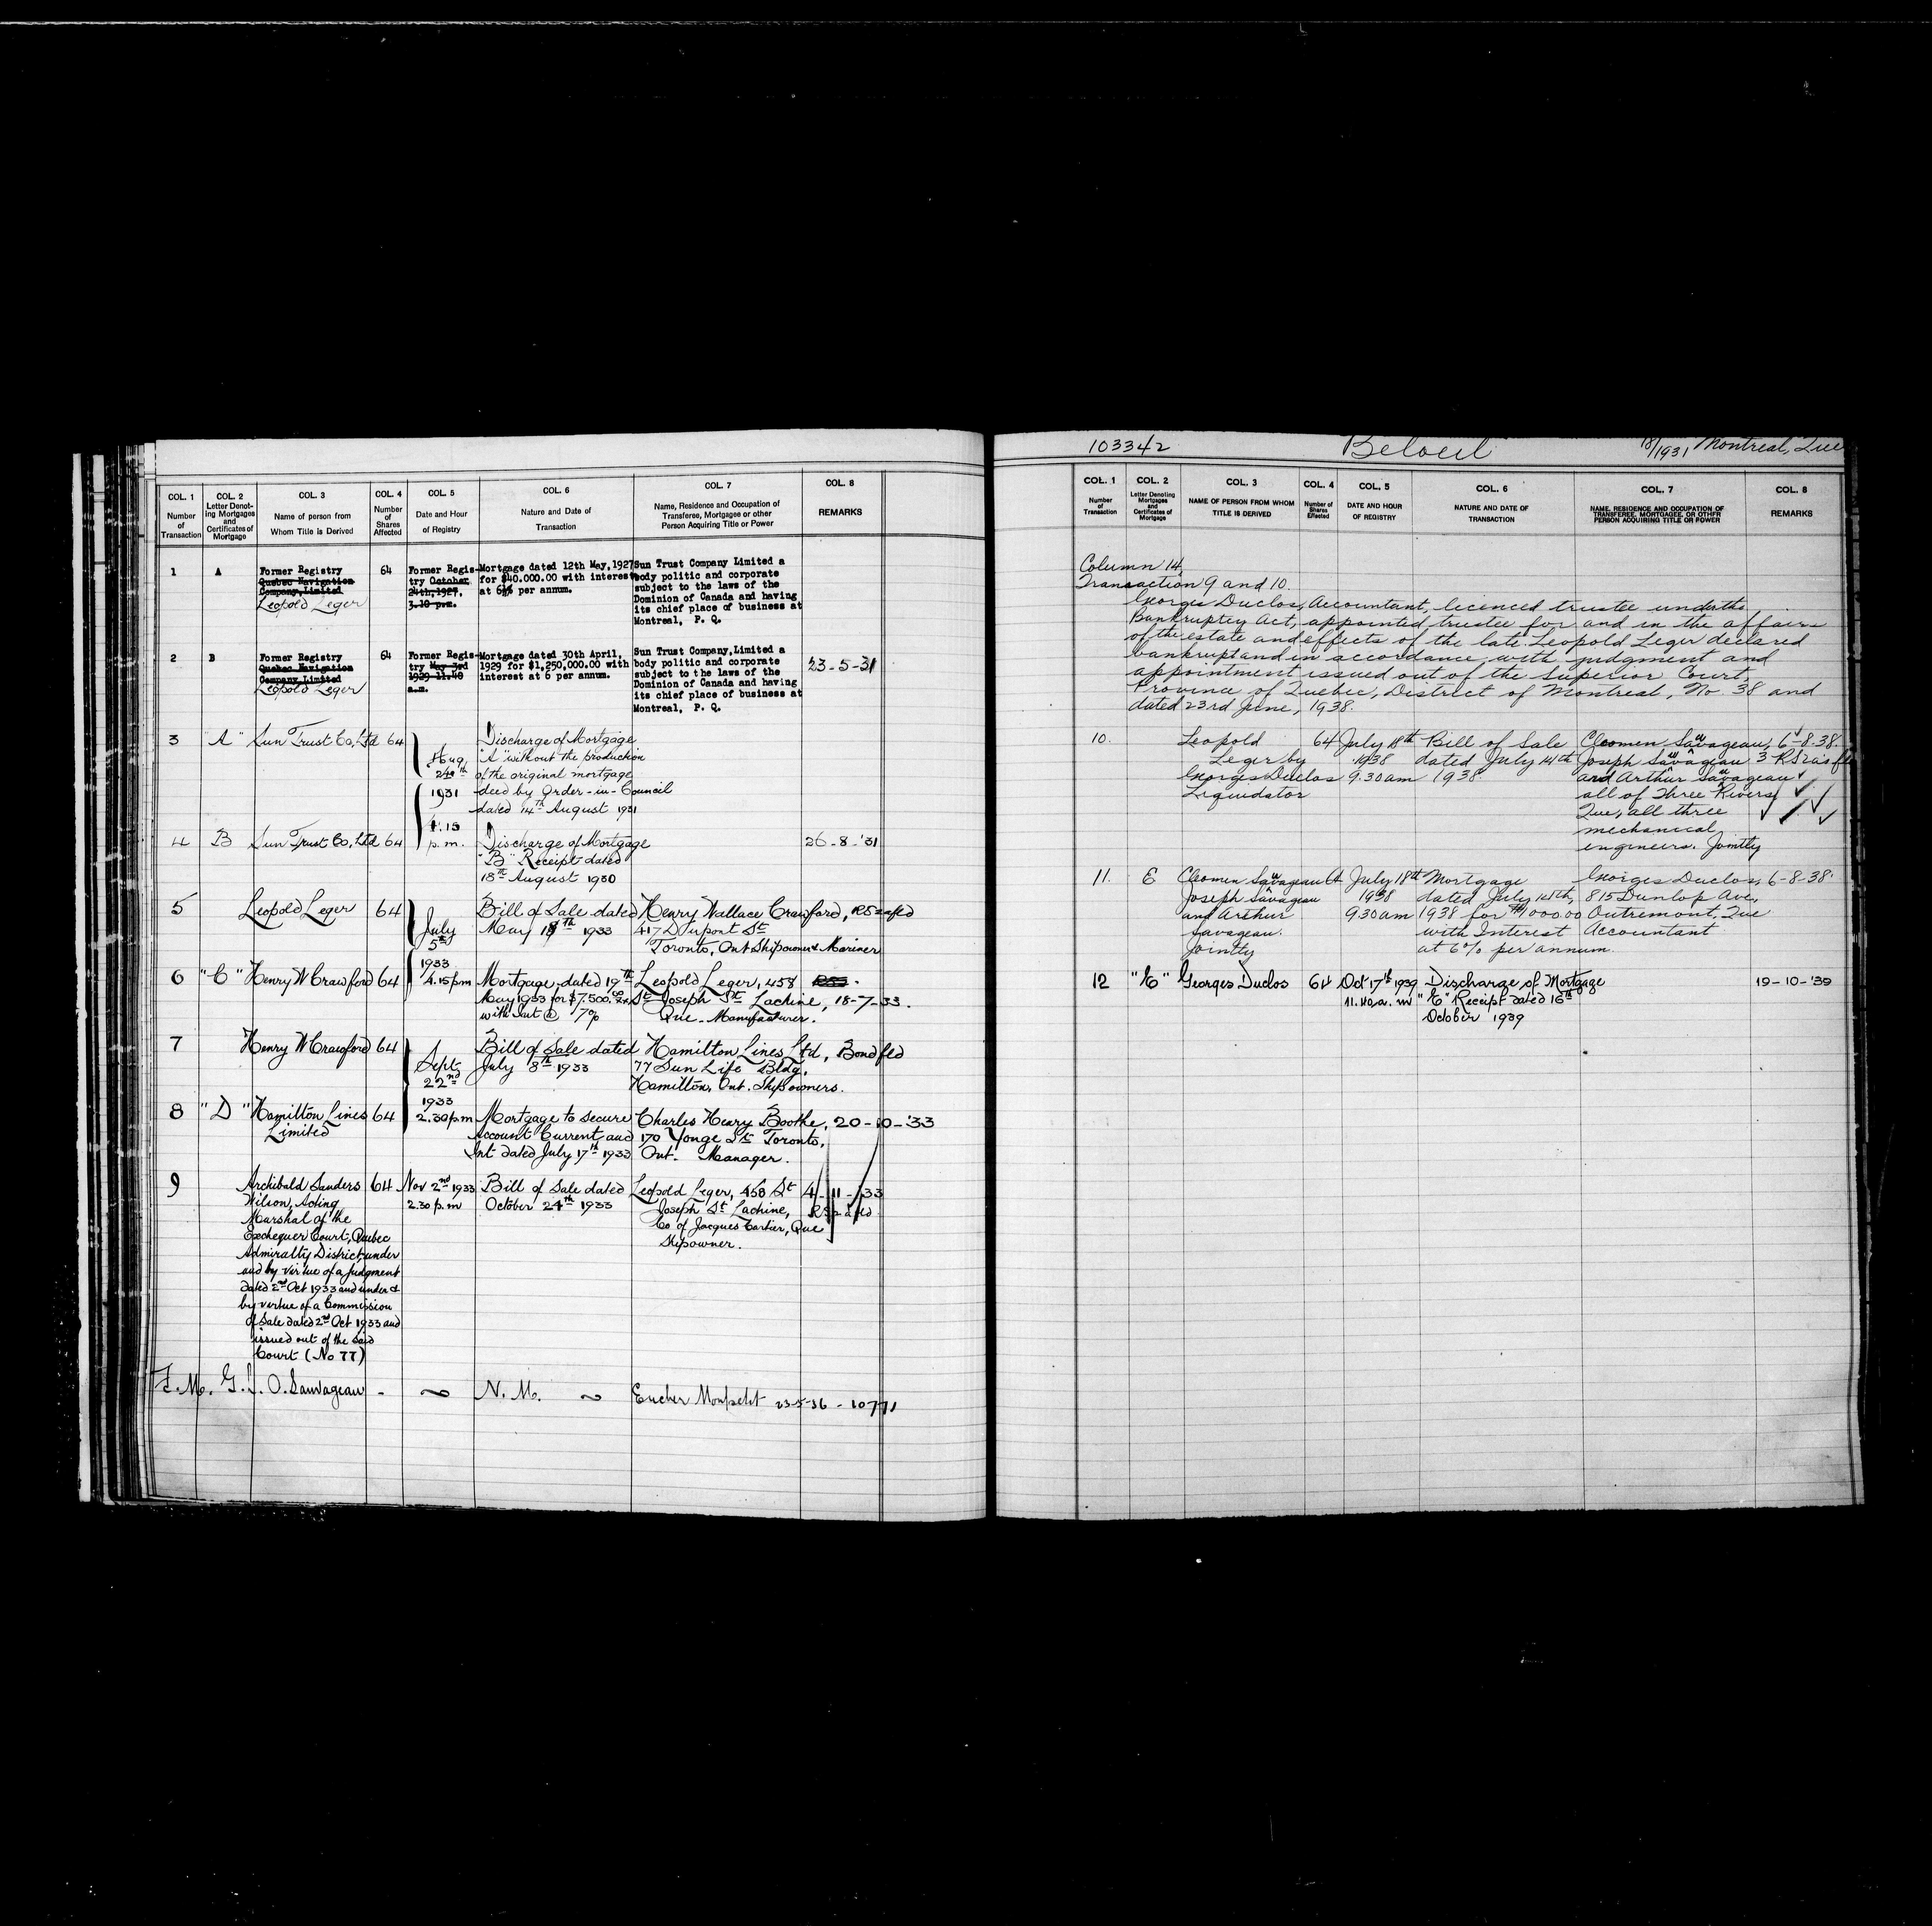 COL. 1 Number of Transaction
COL. 2 Letter Denoting Mortgages and Certificates of Mortgage
COL. 3 Name of person from Whom Title is Derived
COL. 4 Number of Shares Affected
COL. 5 Date and Hour of Registry
COL. 6 Nature and Date of Transaction
COL. 7 Name, Residence and Occupation of Transferee, Mortgagee or other Person Acquiring Title or Power
COL. 8 REMARKS
1 A Former Registry 64 Former Regis- Mortgage dated 12th May, 1927 Sun Trust Company Limited a
Quebec Navigation try October for $40.000.00 with interest body politic and corporate
Company, Limited 24th, 1927, at 6½% per annum. subject to the laws of the
Leopold Leger 3.10 p.m. Dominion of Canada and having
its chief place of business at
Montreal, P. Q.
2 B Former Registry 64 Former Regis- Mortgage dated 30th April, Sun Trust Company, Limited a 23-5-31
Quebec Navigation try May 3rd 1929 for $1,250,000.00 with body politic and corporate
Company Limited 1929 11.40 interest at 6 per annum. subject to the laws of the
Leopold Leger a.m. Dominion of Canada and having
its chief place of business at
Montreal, P. Q.
3 "A" Sun Trust Co, Ltd 64 Discharge of Mortgage
Aug, "A" without the production
24th of the original mortgage
1931 deed by Order-in-Council
dated 14th August 1931
1.15
4 B Sun Trust Co, Ltd 64 p.m. Discharge of Mortgage 26-8-'31
"B" Receipt dated
18th August 1930
5 Leopold Leger 64 Bill of Sale dated Henry Wallace Crawford, RS2afld
July May 18th 1933 417 Dupont St
5th Toronto, Ont Shipowner & Mariner
1933
6 "C" Henry W Crawford 64 4.15 pm Mortgage dated 19th Leopold Leger, 458
May 1933 for $7,500.00 St Joseph St Lachine, 18-7-33.
with int @ 7% Que - Manufacturer.
7 Henry W Crawford 64 Bill of Sale dated Hamilton Lines Ltd, Bond fld
Sept July 8th 1933 77 Sun Life Bldg,
22nd Hamilton, Ont. Shipowners.
1933
8 "D" Hamilton Lines 64 2.30 p.m Mortgage to secure Charles Henry Boothe, 20-10-'33
Limited Account Current and 170 Yonge St Toronto,
Int dated July 17th 1933 Ont. Manager.
9 Archibald Sanders 64 Nov 2nd 1933 Bill of Sale dated Leopold Leger, 458 St 4-11-'33
Wilson, Acting 2.30 p.m October 24th 1933 Joseph St Lachine, RS2afld
Marshal of the Co of Jacques Cartier, Que
Exchequer Court, Quebec Shipowner.
Admiralty District, under
and by virtue of a judgment
dated 2nd Oct 1933 and under &
by virtue of a Commission
of Sale dated 2nd Oct 1933 and
issued out of the said
Court (No 77)
F.M. G.J.O. Sauvageau - ~ N. M. ~ Eucher Monpetit 23-5-36 - 10771
103342 Beloeil 18/1931 Montreal, Que
COL. 1 Number of Transaction
COL. 2 Letter Denoting Mortgages and Certificates of Mortgage
COL. 3 NAME OF PERSON FROM WHOM TITLE IS DERIVED
COL. 4 Number of Shares Effected
COL. 5 DATE AND HOUR OF REGISTRY
COL. 6 NATURE AND DATE OF TRANSACTION
COL. 7 NAME, RESIDENCE AND OCCUPATION OF TRANSFEREE, MORTGAGEE, OR OTHER PERSON ACQUIRING TITLE OR POWER
COL. 8 REMARKS
Column 14,
Transaction 9 and 10.
Georges Duclos, Accountant, licenced trustee under the
Bankruptcy Act, appointed trustee for and in the affairs
of the estate and effects of the late Leopold Leger declared
bankrupt and in accordance with judgment and
appointment issued out of the Superior Court,
Province of Quebec, District of Montreal, No. 38 and
dated 23rd June, 1938.
10. Leopold 64 July 18th Bill of Sale Cleomen Sauvageau, 6-8-38.
Leger by 1938 dated July 14th Joseph Sauvageau 3 RS2as fld
Georges Duclos 9.30am 1938 and Arthur Sauvageau
Liquidator all of Three Rivers,
Que, all three
mechanical
engineers. Jointly
11. E Cleomen Sauvageau 64 July 18th Mortgage Georges Duclos, 6-8-38.
Joseph Sauvageau 1938 dated July 14th, 815 Dunlop Ave,
and Arthur 9.30am 1938 for $1,000.00 Outremont, Que
Sauvageau. with Interest Accountant
Jointly at 6% per annum.
12 "E" Georges Duclos 64 Oct 17th 1939 Discharge of Mortgage 19-10-'39
11.40 a.m "E" Receipt dated 16th
October 1939